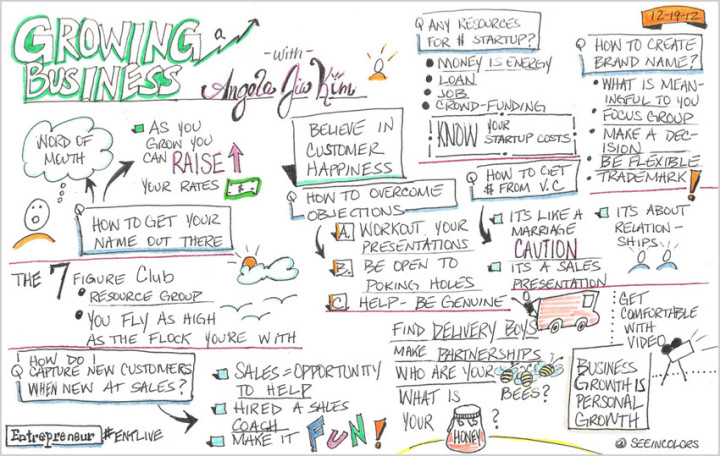 GROWING
a
BUSINESS
-with-
Angela Jia Kim
12-19-12
WORD OF
MOUTH
AS YOU
GROW YOU
CAN RAISE
YOUR RATES $
Q HOW TO GET YOUR
NAME OUT THERE
THE 7 FIGURE CLUB
• RESOURCE GROUP
• YOU FLY AS HIGH
AS THE FLOCK YOU'RE WITH
Q HOW DO I
CAPTURE NEW CUSTOMERS
WHEN NEW AT SALES?
SALES = OPPORTUNITY
TO HELP
HIRED A SALES
COACH
MAKE IT FUN!
Entrepreneur #ENTLIVE
BELIEVE IN
CUSTOMER
HAPPINESS
Q HOW TO OVERCOME
OBJECTIONS
A. WORKOUT YOUR
PRESENTATIONS
B. BE OPEN TO
POKING HOLES
C. HELP - BE GENUINE
Q ANY RESOURCES
FOR $ STARTUP?
• MONEY IS ENERGY
• LOAN
• JOB
• CROWD-FUNDING
KNOW YOUR
STARTUP COSTS
Q HOW TO GET
$ FROM V.C.
IT'S LIKE A
MARRIAGE
CAUTION
IT'S A SALES
PRESENTATION
IT'S ABOUT
RELATION-
SHIPS
Q HOW TO CREATE
BRAND NAME?
• WHAT IS MEAN-
INGFUL TO YOU
• FOCUS GROUP
• MAKE A DEC-
ISION
• BE FLEXIBLE
• TRADEMARK!
FIND DELIVERY BOYS
MAKE PARTNERSHIPS
WHO ARE YOUR
BEES?
WHAT IS
YOUR HONEY ?
GET
COMFORTABLE
WITH
VIDEO
BUSINESS
GROWTH IS
PERSONAL
GROWTH
@SEEINCOLORS